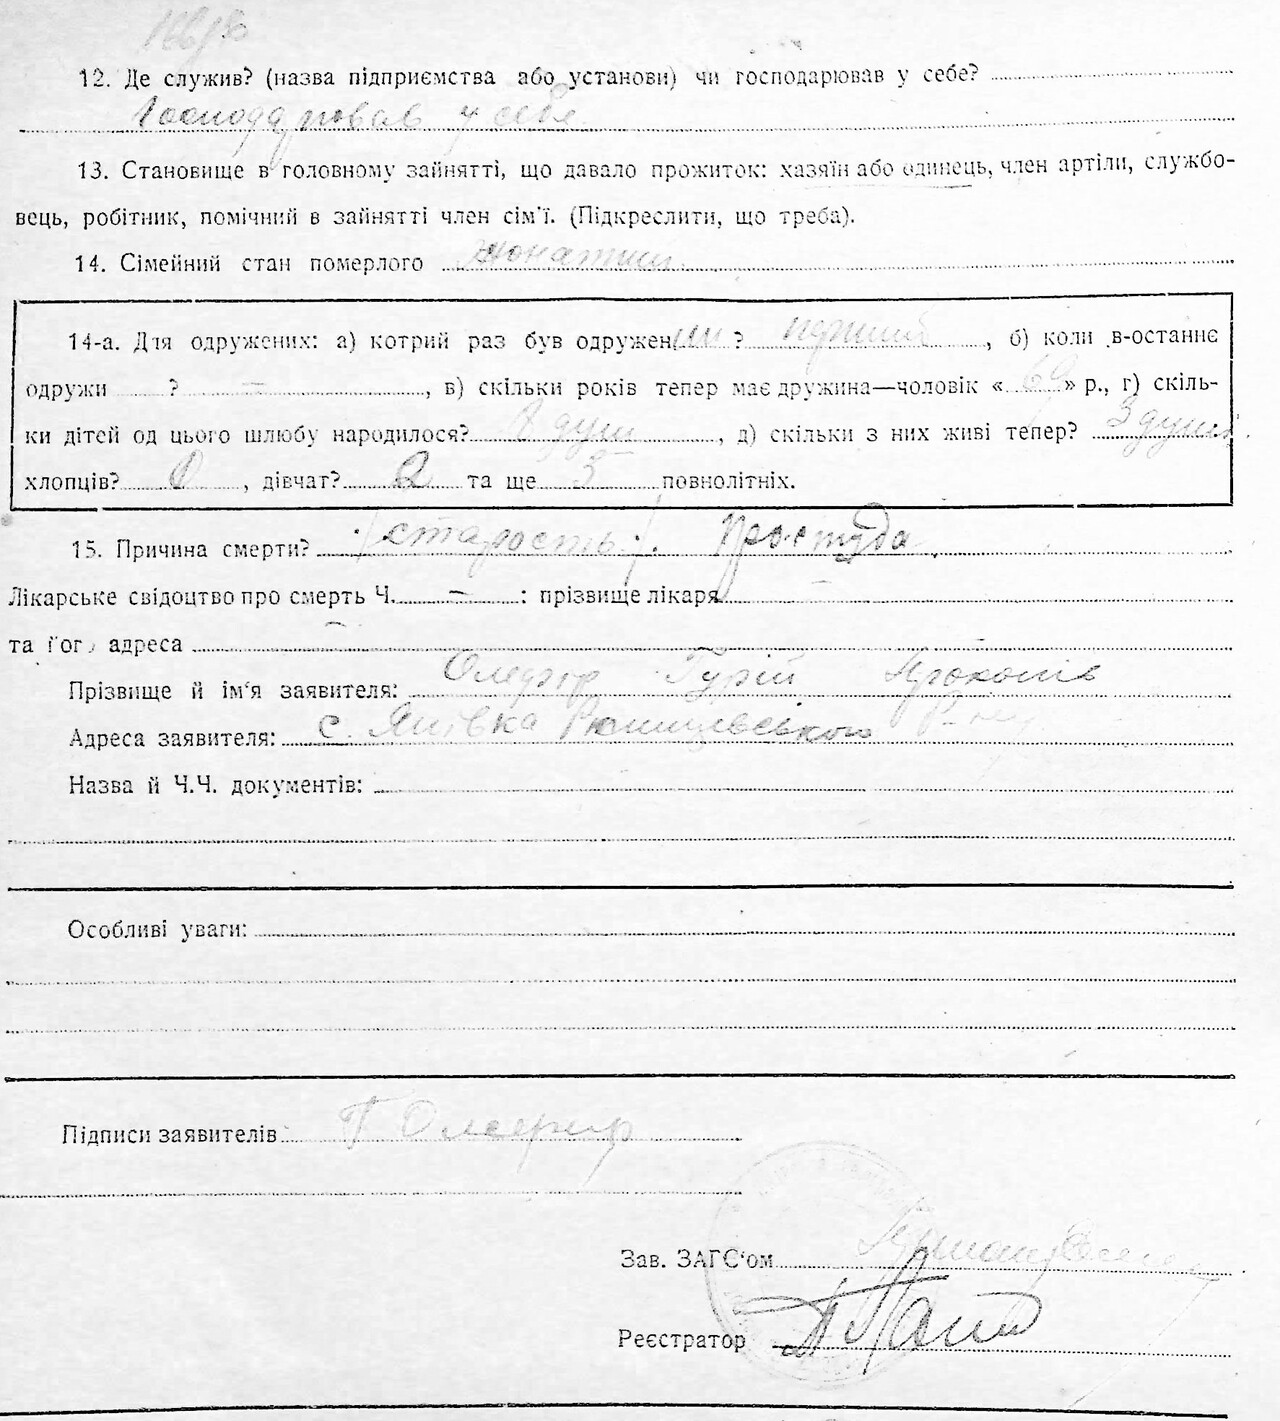 12. Де служив? (назва підприємства або установи) чи господарював у себе?
Господарював у себе
13. Становище в головному зайнятті, що давало прожиток: хазяїн або одинець, член артіли, службо-
вець, робітник, помічний в зайнятті член сім'ї. (Підкреслити, що треба).
14. Сімейний стан померлого жонатий
14-а. Для одружених: а) котрий раз був одружений? перший, б) коли в-останнє
одружи ? —, в) скільки років тепер має дружина—чоловік «69» р., г) скіль-
ки дітей од цього шлюбу народилося? душ, д) скільки з них живі тепер? 3 душі
хлопців? 1, дівчат? 2 та ще 3 повнолітніх.
15. Причина смерти? /старость/. Простуда
Лікарське свідоцтво про смерть Ч. — : прізвище лікаря —
та його адреса —
Прізвище й ім'я заявителя: Олефір Гурій Прокопів
Адреса заявителя: с. Яківка Р-ну
Назва й Ч.Ч. документів:
Особливі уваги:
Підписи заявителів Г Олефир
Зав. ЗАГС'ом
Реєстратор